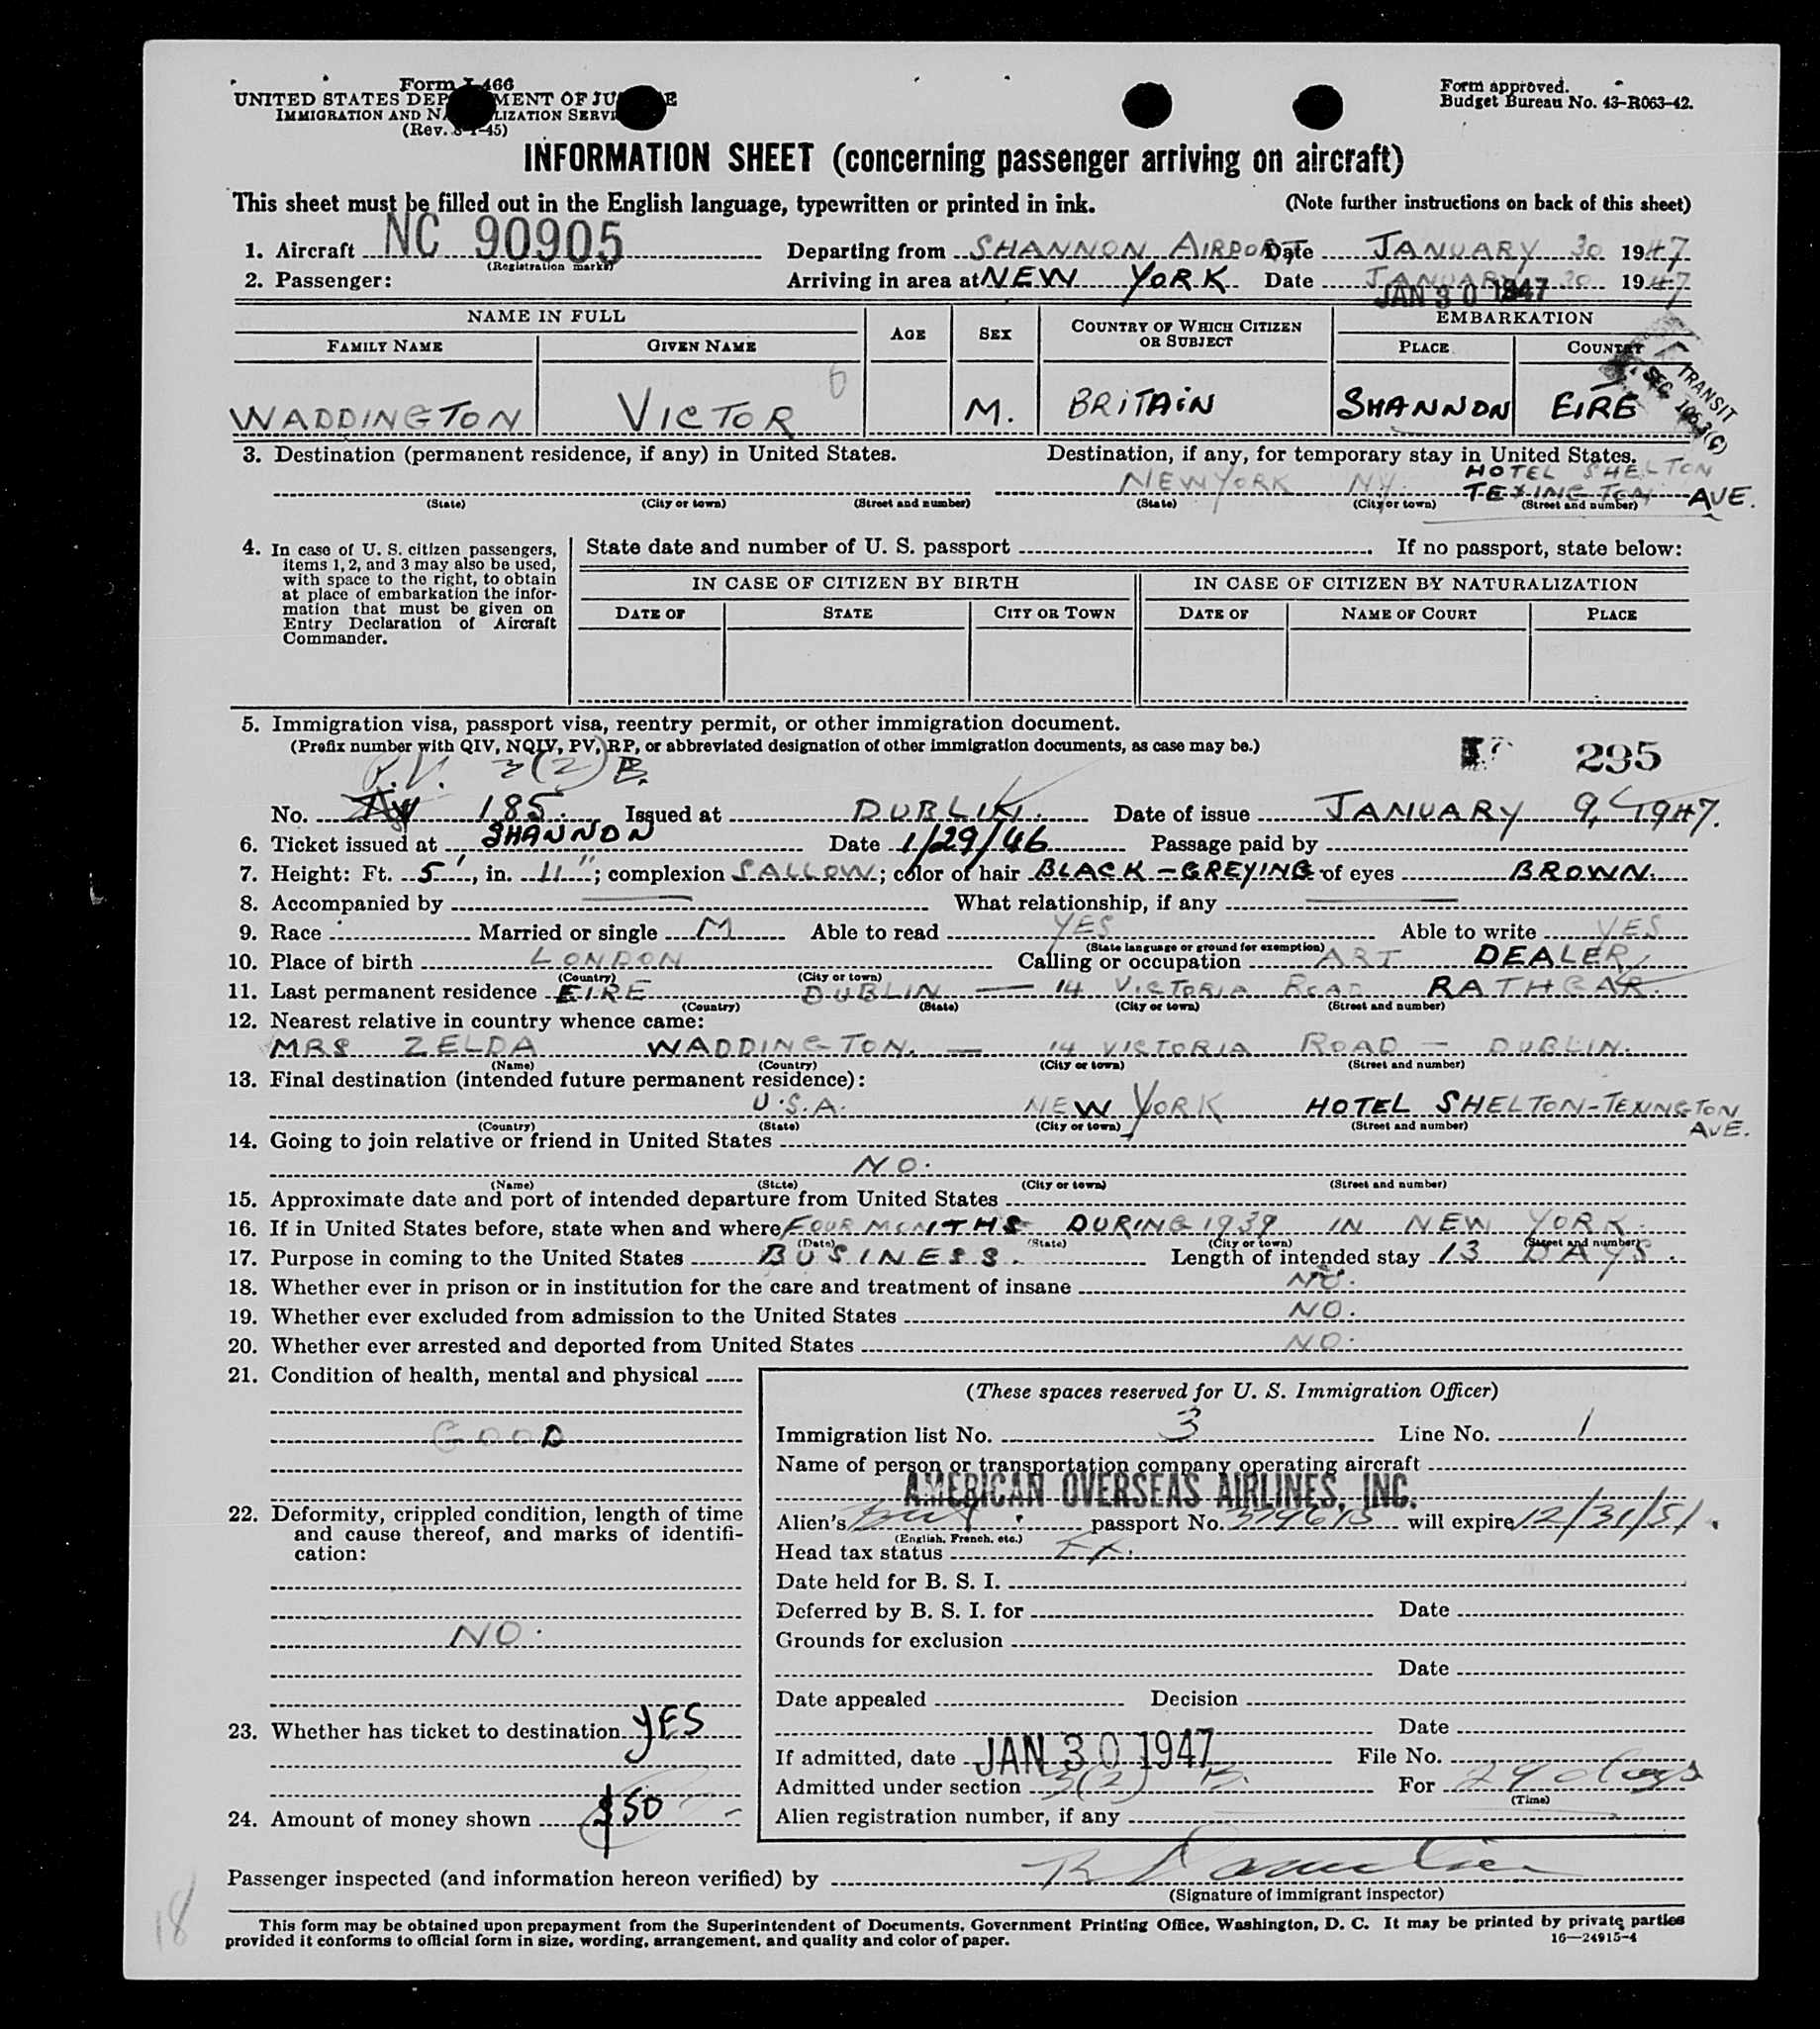 Form I-466
UNITED STATES DEPARTMENT OF JUSTICE
IMMIGRATION AND NATURALIZATION SERVICE
(Rev. 8-1-45)
Form approved.
Budget Bureau No. 43-R063-42.
INFORMATION SHEET (concerning passenger arriving on aircraft)
This sheet must be filled out in the English language, typewritten or printed in ink. (Note further instructions on back of this sheet)
1. Aircraft NC 90905 Departing from SHANNON AIRPORT Date JANUARY 30 1947
(Registration marks)
2. Passenger: Arriving in area at NEW YORK Date JANUARY 30 1947
JAN 30 1947
NAME IN FULL AGE SEX COUNTRY OF WHICH CITIZEN OR SUBJECT EMBARKATION
FAMILY NAME GIVEN NAME PLACE COUNTRY
TRANSIT
SEC
WADDINGTON VICTOR 6 M. BRITAIN SHANNON EIRE
3. Destination (permanent residence, if any) in United States. Destination, if any, for temporary stay in United States.
HOTEL SHELTON
NEW YORK NY. TEXINGTON AVE.
(State) (City or town) (Street and number) (State) (City or town) (Street and number)
4. In case of U. S. citizen passengers, items 1, 2, and 3 may also be used, with space to the right, to obtain at place of embarkation the information that must be given on Entry Declaration of Aircraft Commander.
State date and number of U. S. passport If no passport, state below:
IN CASE OF CITIZEN BY BIRTH IN CASE OF CITIZEN BY NATURALIZATION
DATE OF STATE CITY OR TOWN DATE OF NAME OF COURT PLACE
5. Immigration visa, passport visa, reentry permit, or other immigration document.
(Prefix number with QIV, NQIV, PV, RP, or abbreviated designation of other immigration documents, as case may be.)
295
P.V. 3(2) B.
No. 185. Issued at DUBLIN. Date of issue JANUARY 9, 1947.
6. Ticket issued at SHANNON Date 1/29/46 Passage paid by
7. Height: Ft. 5', in. 11"; complexion SALLOW; color of hair BLACK-GREYING of eyes BROWN.
8. Accompanied by — What relationship, if any —
9. Race Married or single M Able to read YES Able to write YES
(State language or ground for exemption)
10. Place of birth LONDON Calling or occupation ART DEALER
(Country) (City or town)
11. Last permanent residence EIRE DUBLIN — 14 VICTORIA ROAD RATHGAR.
(Country) (State) (City or town) (Street and number)
12. Nearest relative in country whence came:
MRS ZELDA WADDINGTON. — 14 VICTORIA ROAD — DUBLIN.
(Name) (Country) (City or town) (Street and number)
13. Final destination (intended future permanent residence):
U.S.A. NEW YORK HOTEL SHELTON-TEXINGTON
AVE.
(Country) (State) (City or town) (Street and number)
14. Going to join relative or friend in United States
NO.
(Name) (State) (City or town) (Street and number)
15. Approximate date and port of intended departure from United States
16. If in United States before, state when and where FOUR MONTHS DURING 1939 IN NEW YORK.
(Date) (State) (City or town) (Street and number)
17. Purpose in coming to the United States BUSINESS. Length of intended stay 13 DAYS.
18. Whether ever in prison or in institution for the care and treatment of insane NO.
19. Whether ever excluded from admission to the United States NO.
20. Whether ever arrested and deported from United States NO.
21. Condition of health, mental and physical
GOOD
22. Deformity, crippled condition, length of time and cause thereof, and marks of identification:
NO.
23. Whether has ticket to destination YES
24. Amount of money shown $50
(These spaces reserved for U. S. Immigration Officer)
Immigration list No. 3 Line No. 1
Name of person or transportation company operating aircraft
AMERICAN OVERSEAS AIRLINES, INC.
Alien's Brit. passport No. will expire 12/31/51.
(English, French, etc.)
Head tax status
Date held for B. S. I.
Deferred by B. S. I. for Date
Grounds for exclusion
Date
Date appealed Decision
Date
If admitted, date JAN 30 1947 File No.
Admitted under section 3(2) B. For 29 days
(Time)
Alien registration number, if any
Passenger inspected (and information hereon verified) by
(Signature of immigrant inspector)
18
This form may be obtained upon prepayment from the Superintendent of Documents, Government Printing Office, Washington, D. C. It may be printed by private parties
provided it conforms to official form in size, wording, arrangement, and quality and color of paper. 16—24915-4